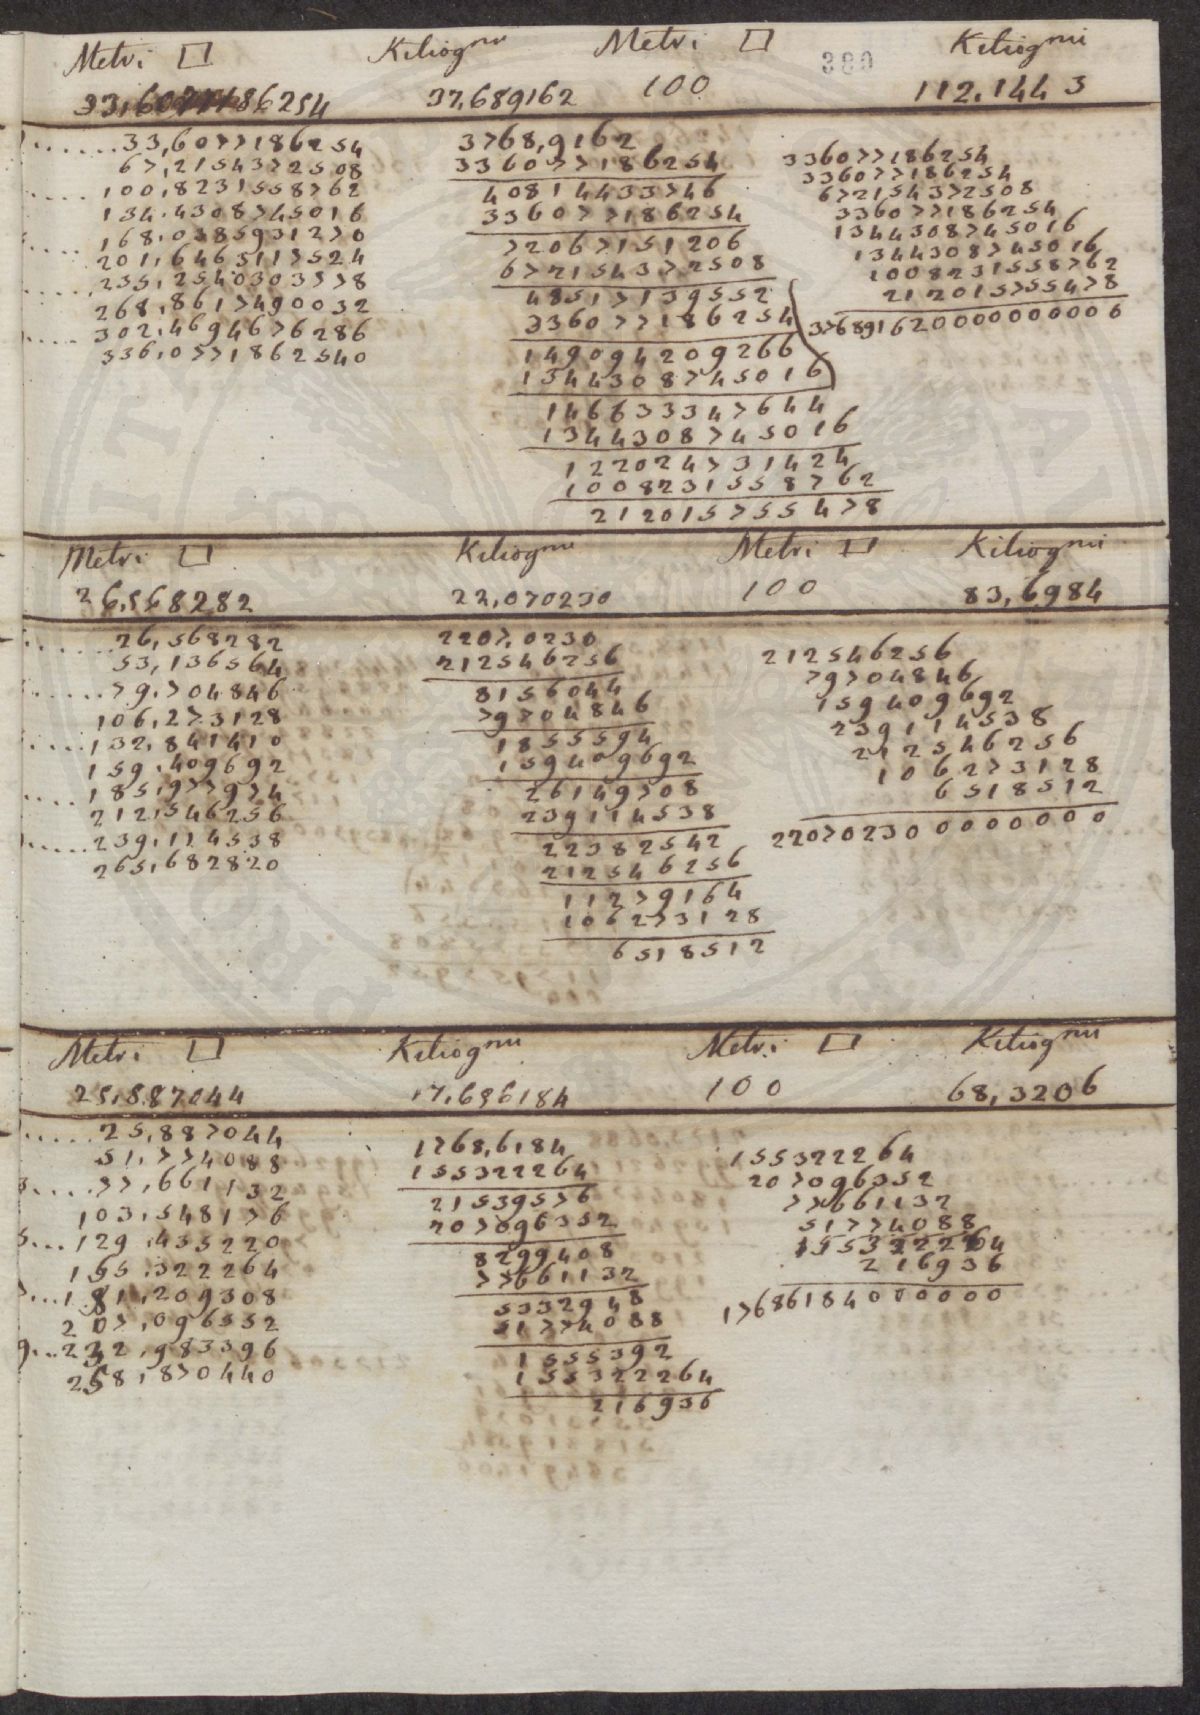 Metri □ Kiliogmi Metri □ 380 Kiliogmi
33,6077186254 37,689162 100 112,1443
33,6077186254
67,2154372508
100,8231558762
134,4308745016
168,0385931270
201,6463117524
235,2540303778
268,8617490032
302,4694676286
336,0771862540
3768,9162
336077186254
408144337 46
336077186254
72067151206
672154372508
48517139552
336077186254
149094209266
1344308745016
146633347644
1344308745016
122024731424
1008231558762
212015755478
336077186254
336077186254
672154372508
336077186254
1344308745016
1344308745016
1008231558762
212015755478
37689162000000000 6
Metri □ Kiliogmi Metri □ Kiliogmi
26,568282 22,070230 100 83,6984
26,568282
53,136564
79,704846
106,273128
132,841410
159,409692
185,977974
212,546256
239,114538
265,682820
2207,0230
212546256
8156044
79704846
1855594
159409692
26149708
239114538
22382542
212546256
11279164
106273128
6518512
212546256
79704846
159409692
239114538
212546256
106273128
6518512
22070230 0000000
Metri □ Kiliogmi Metri □ Kiliogmi
25,887044 17,686184 100 68,3206
25,887044
51,774088
3....77,661132
103,548176
5...129,435220
155,322264
7...181,209308
207,096352
9...232,983396
258,870440
1768,6184
155322264
21539576
207096352
8299408
77661132
5332948
51774088
1555392
155322264
216936
155322264
207096352
77661132
51774088
155322264
216936
17686184000000